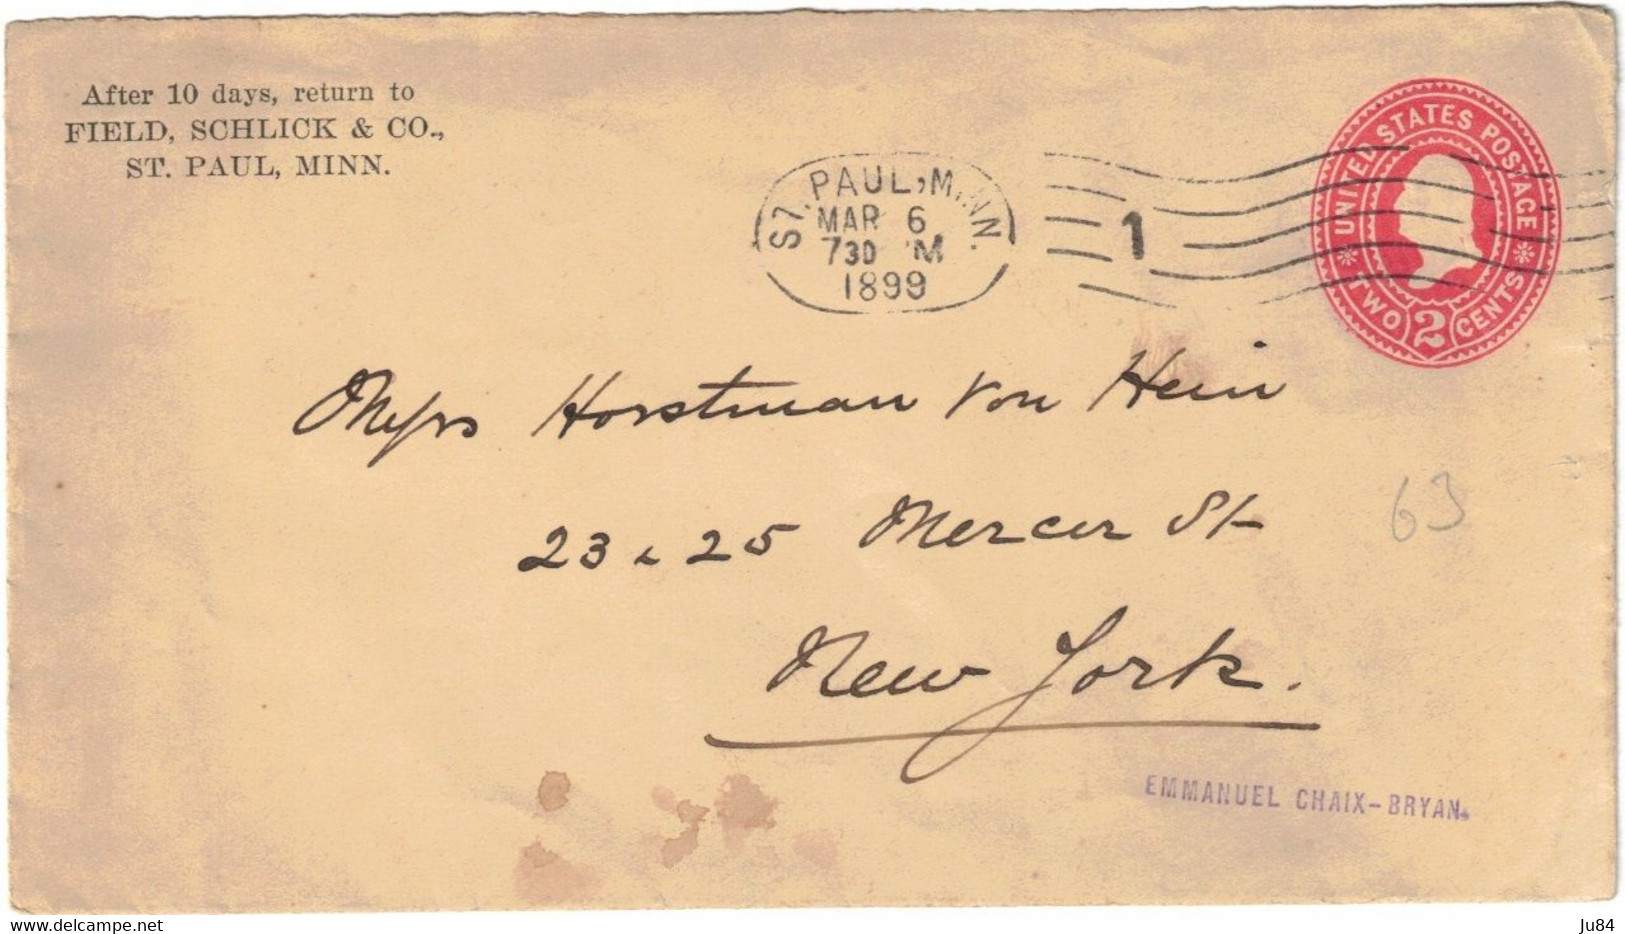 After 10 days, return to
FIELD, SCHLICK & CO.,
ST. PAUL, MINN.
ST. PAUL, MINN.
MAR 6
730 M
1899
1
UNITED STATES POSTAGE
TWO 2 CENTS
Messrs Horstman Von Hein
23 & 25 Mercer St
New York.
63
EMMANUEL CHAIX-BRYAN.
www.delcampe.net
Ju84